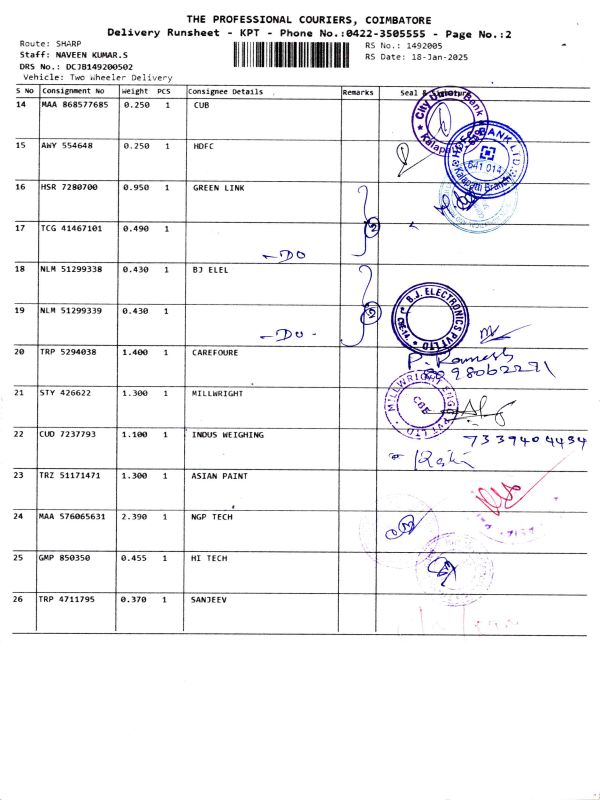 THE PROFESSIONAL COURIERS, COIMBATORE
Delivery Runsheet - KPT - Phone No.:0422-3505555 - Page No.:2
Route: SHARP
RS No.: 1492005
Staff: NAVEEN KUMAR.S
RS Date: 18-Jan-2025
DRS No.: DCJB149200502
Vehicle: Two Wheeler Delivery
S No Consignment No Weight PCS Consignee Details Remarks Seal & Signature
14 MAA 868577685 0.250 1 CUB
City Union Bank
15 AWY 554648 0.250 1 HDFC
HDFC BANK LTD.
641 014
Kalapatti Branch
16 HSR 7280700 0.950 1 GREEN LINK
17 TCG 41467101 0.490 1
-DO
18 NLM 51299338 0.430 1 BJ ELEL
19 NLM 51299339 0.430 1
-DO-
B.J. ELECTRONICS PVT LTD
CBE-14.
20 TRP 5294038 1.400 1 CAREFOURE
P. Ramesh
21 STY 426622 1.300 1 MILLWRIGHT
MILLWRIGHT ENGG PVT LTD
CBE
22 CUD 7237793 1.100 1 INDUS WEIGHING
7339404434
23 TRZ 51171471 1.300 1 ASIAN PAINT
24 MAA 576065631 2.390 1 NGP TECH
25 GMP 850350 0.455 1 HI TECH
26 TRP 4711795 0.370 1 SANJEEV